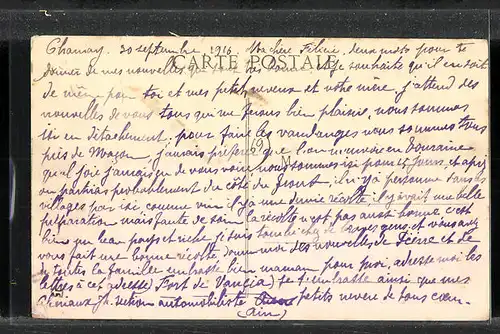 Charnay 30 septembre 1916. Ma chère Félicie, deux mots pour te
donner de mes nouvelles qui sont bonnes je souhaite qu'il en soit
CARTE POSTALE
de même pour toi et mes petits neveux et votre mère, j'attend des
nouvelles de vous tous qui me ferons bien plaisir, nous sommes
ici en détachement, pour faire les vandanges nous sommes tous
près de Maçon, j'amais préféré que l'on m'envoie en Touraine
quel joie j'amais eu de vous voir nous sommes ici pour 15 jours, et après
on partira probablement du côté du front, il n'y a personne dans les
villages par ici comme vin il y a une demie récolte il y avait une belle
préparation mais faute de soin la récolte n'est pas aussi bonne c'est
bien un beau pays et riche je suis tombé chez de braves gens, et vous avez
vous fait une bonne récolte, donne moi des nouvelles de Pierre et de
de toutes la famille embrasse bien maman pour moi, adresse moi les
lettres à cet adresse Fort de Vancia je t'embrasse ainsi que mes
section automobiliste petits neveu de tous cœur
(Ain)